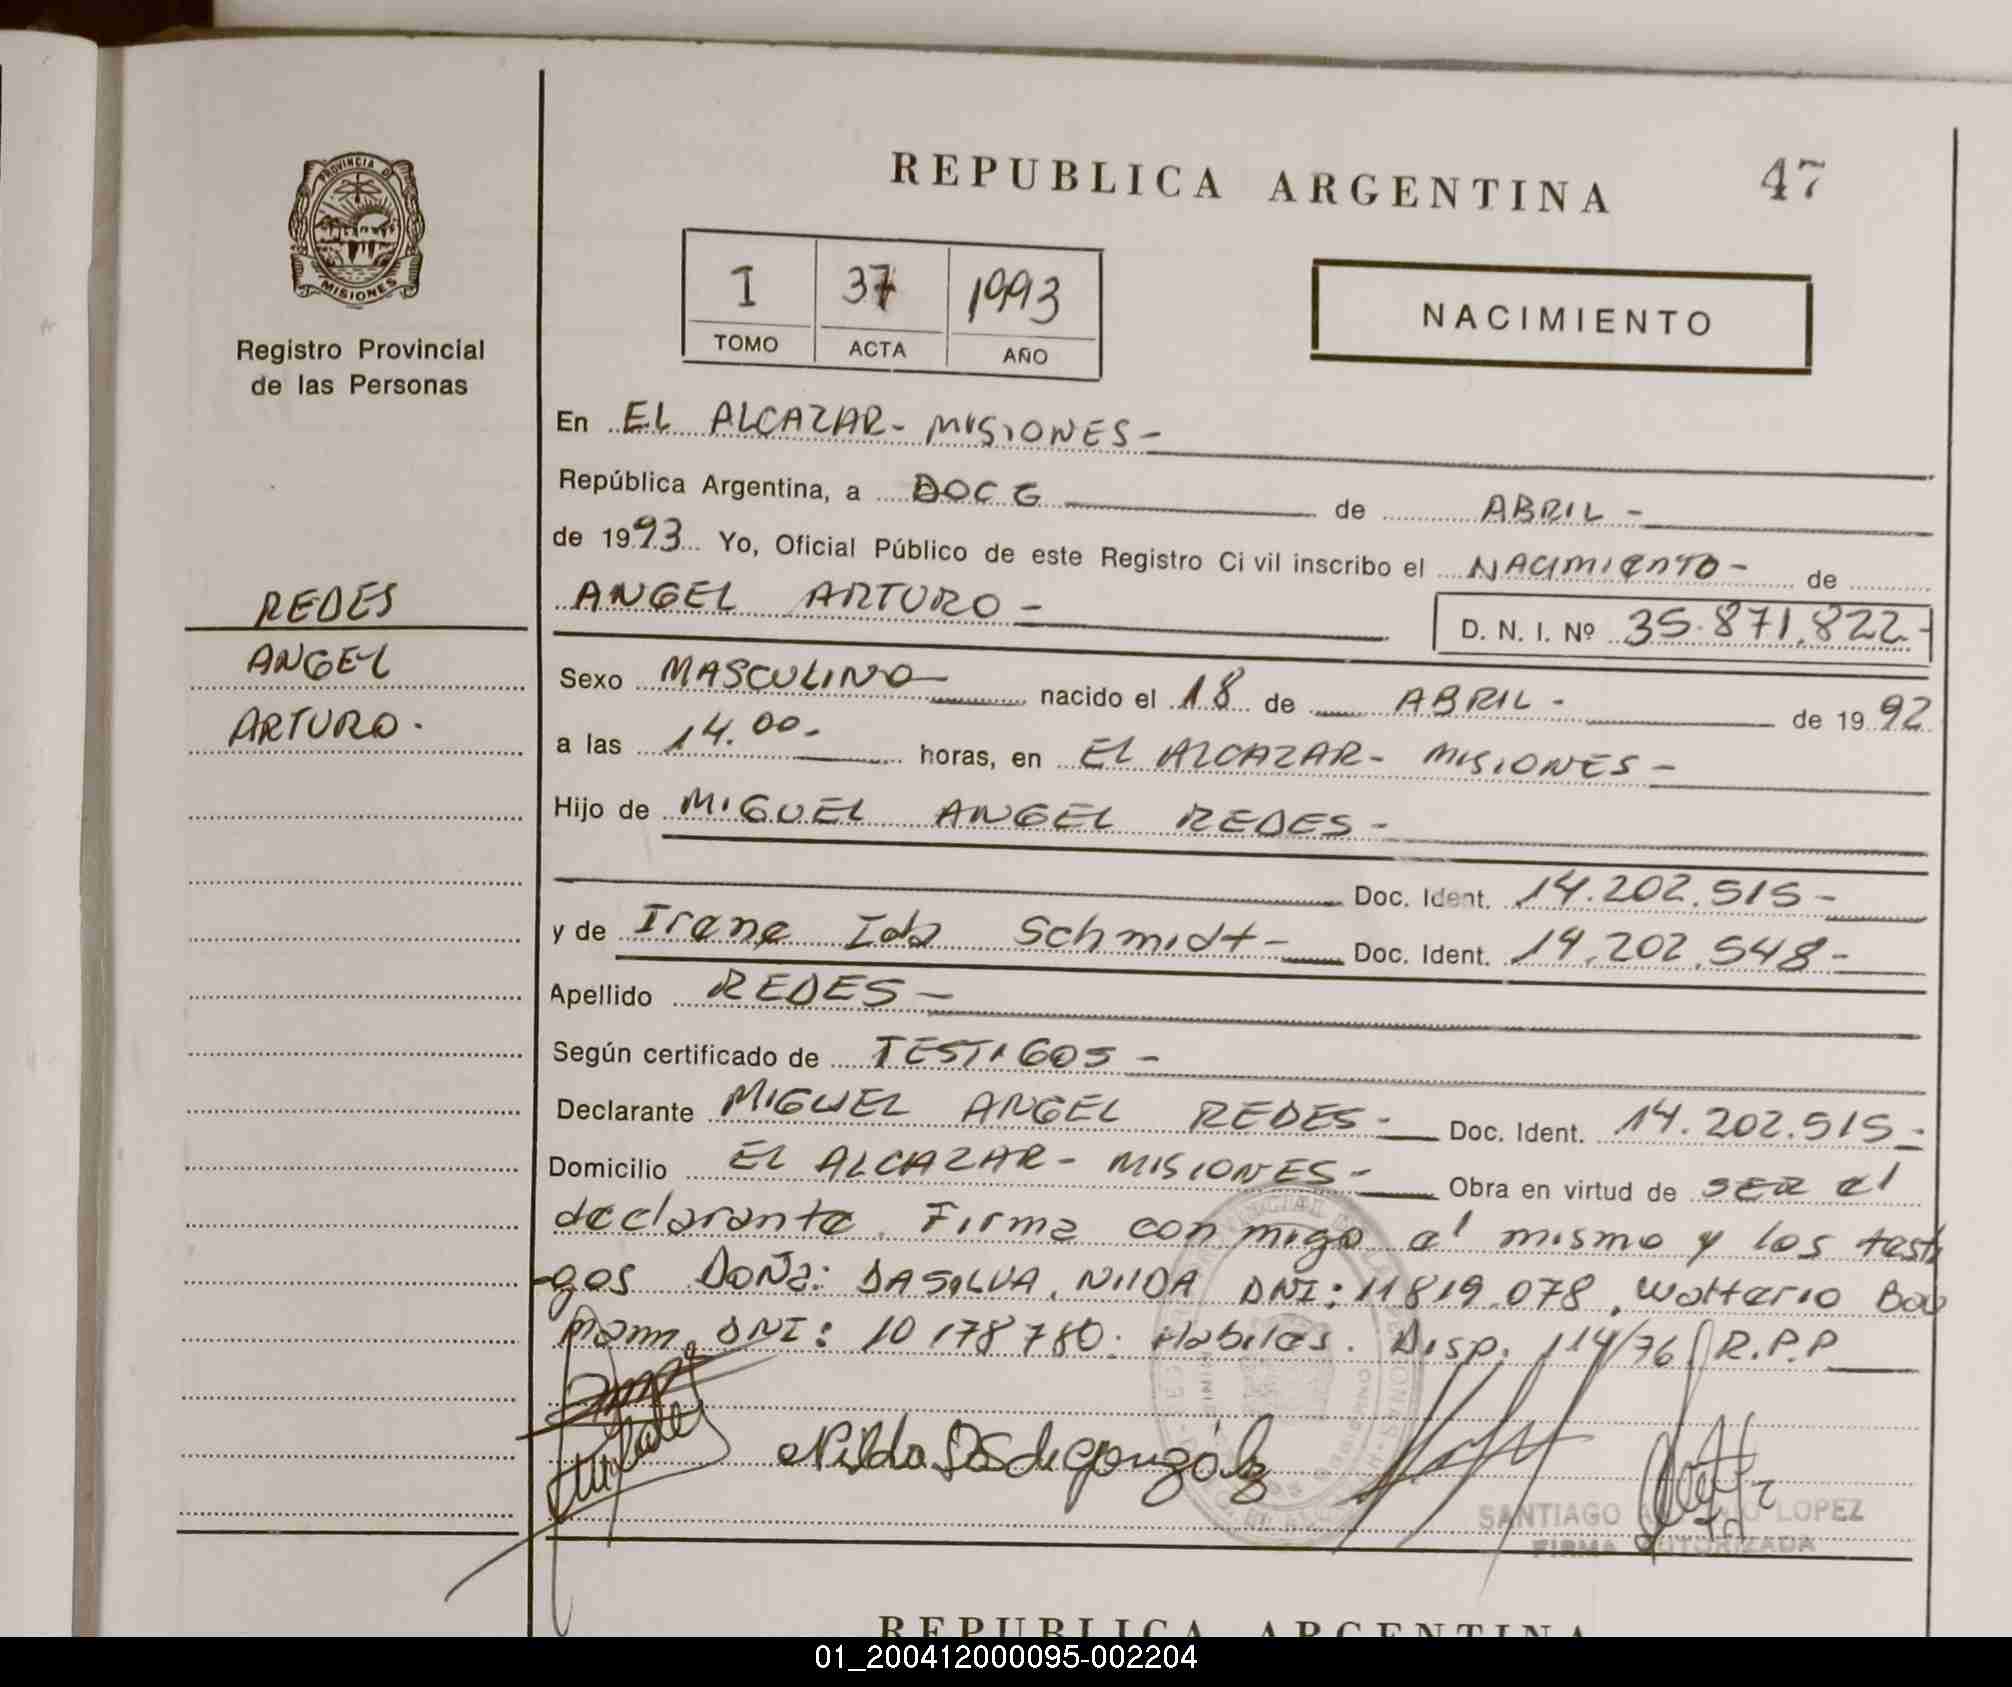 REPUBLICA ARGENTINA
47
PROVINCIA D
MISIONES
Registro Provincial
de las Personas
I 37 1993
TOMO ACTA AÑO
NACIMIENTO
En EL ALCAZAR - MISIONES -
República Argentina, a DOCE de ABRIL -
de 1993 Yo, Oficial Público de este Registro Civil inscribo el NACIMIENTO - de
ANGEL ARTURO -
D. N. I. Nº 35.871.822 -
REDES
ANGEL
ARTURO.
Sexo MASCULINO nacido el 18 de ABRIL - de 1992
a las 14.00 - horas, en EL ALCAZAR - MISIONES -
Hijo de MIGUEL ANGEL REDES -
Doc. Ident. 14.202.515 -
y de Irene Ida Schmidt - Doc. Ident. 14.202.548 -
Apellido REDES -
Según certificado de TESTIGOS -
Declarante MIGUEL ANGEL REDES - Doc. Ident. 14.202.515 -
Domicilio EL ALCAZAR - MISIONES - Obra en virtud de SER el
declarante. Firma con migo el mismo y los testi
-gos Doña: DASILVA, NILDA DNI: 11819.078, Walterio Bau
mann DNI: 10178780. Habiles. Disp. 114/76 R.P.P
Nilda DS de Gonzáles
SANTIAGO LOPEZ
FIRMA AUTORIZADA
REPUBLICA ARGENTINA
01_200412000095-002204